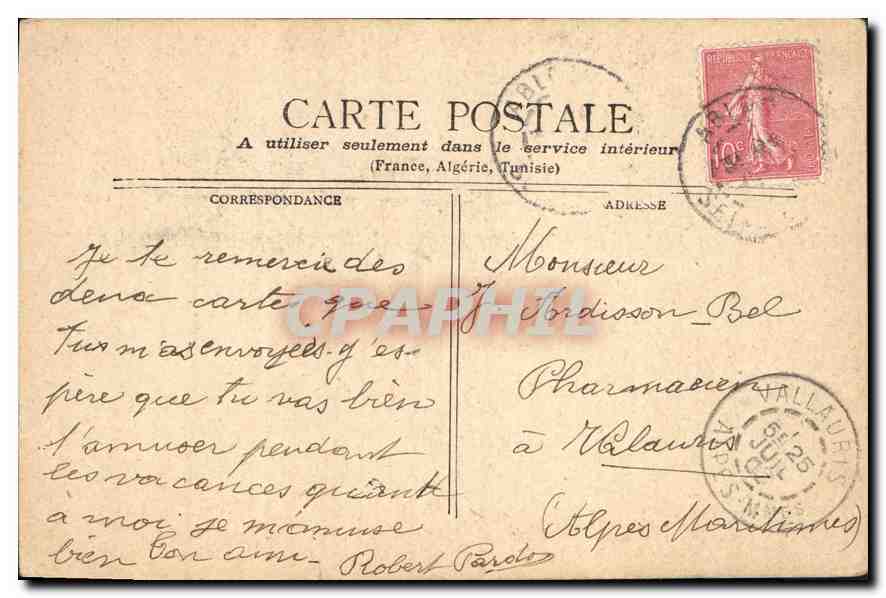 CARTE POSTALE
A utiliser seulement dans le service intérieur
(France, Algérie, Tunisie)
CORRESPONDANCE
Je te remercie des
deux carte que
tu m'as envoyées j'es-
père que tu vas bien
t'amuser pendant
les vacances quant
à moi je m'amuse
bien ton ami
Robert Pardo
ADRESSE
Monsieur
J. Ardisson-Bel
Pharmacien
à Valauris
(Alpes Maritimes)
REPUBLIQUE FRANÇAISE
10c
ABL
ABL
SEI
VALLAURIS
25
JUIL
ALPES-Mmes
CPAPHIL